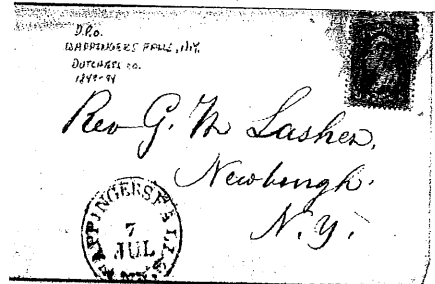 D.P.O.
WAPPINGERS FALLS, N.Y.
DUTCHESS CO.
Rev G. W Lasher,
Newburgh.
N.Y.
WAPPINGERS FALLS
7
JUL
N.Y.